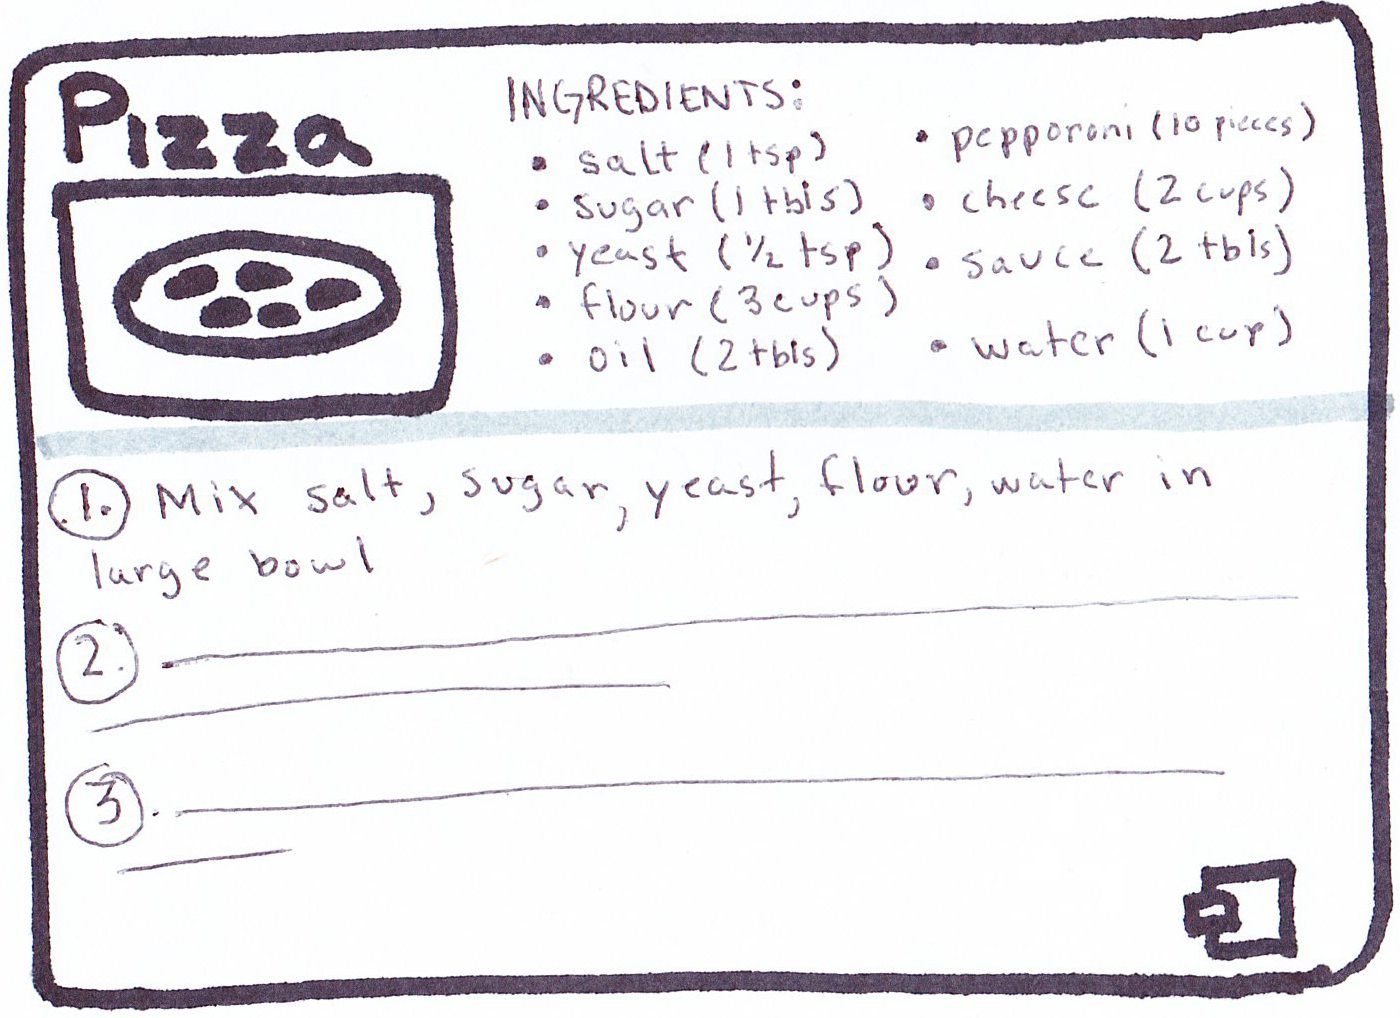 Pizza
INGREDIENTS:
• salt (1 tsp)
• sugar (1 tbls)
• yeast (½ tsp)
• flour (3 cups)
• oil (2 tbls)
• pepporoni (10 pieces)
• cheese (2 cups)
• sauce (2 tbls)
• water (1 cup)
1. Mix salt, sugar, yeast, flour, water in
large bowl
2.
3.